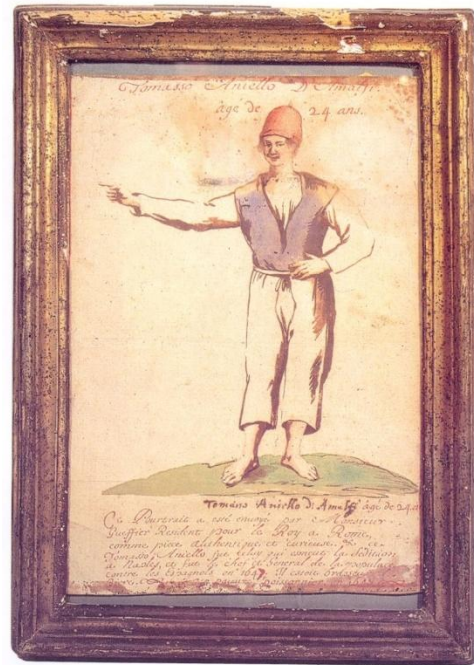 Tomasso Aniello D'Amalfi.
âgé de 24 ans.
Tomaso Aniello di Amalfi âgé de 24
Ce Pourtrait a esté envoyé par Monsieur
Gueffier Resident pour le Roy a Rome,
comme piece authentique et curieuse. Ce
Tomasso Aniello fut celuy qui esmeut la sedition
a Naples, et fut le chef et General de la populace
contre les Espagnols en 1647. Il estoit